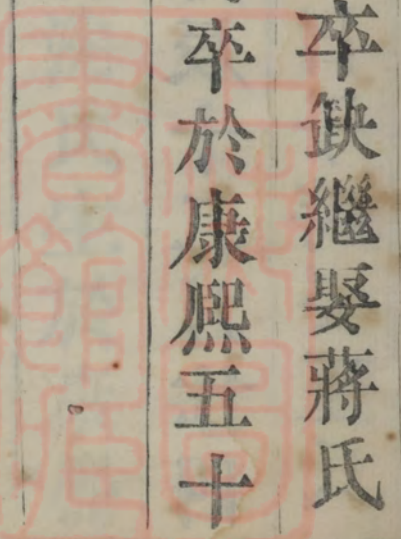 卒缺繼娶蔣氏
卒於康熙五十